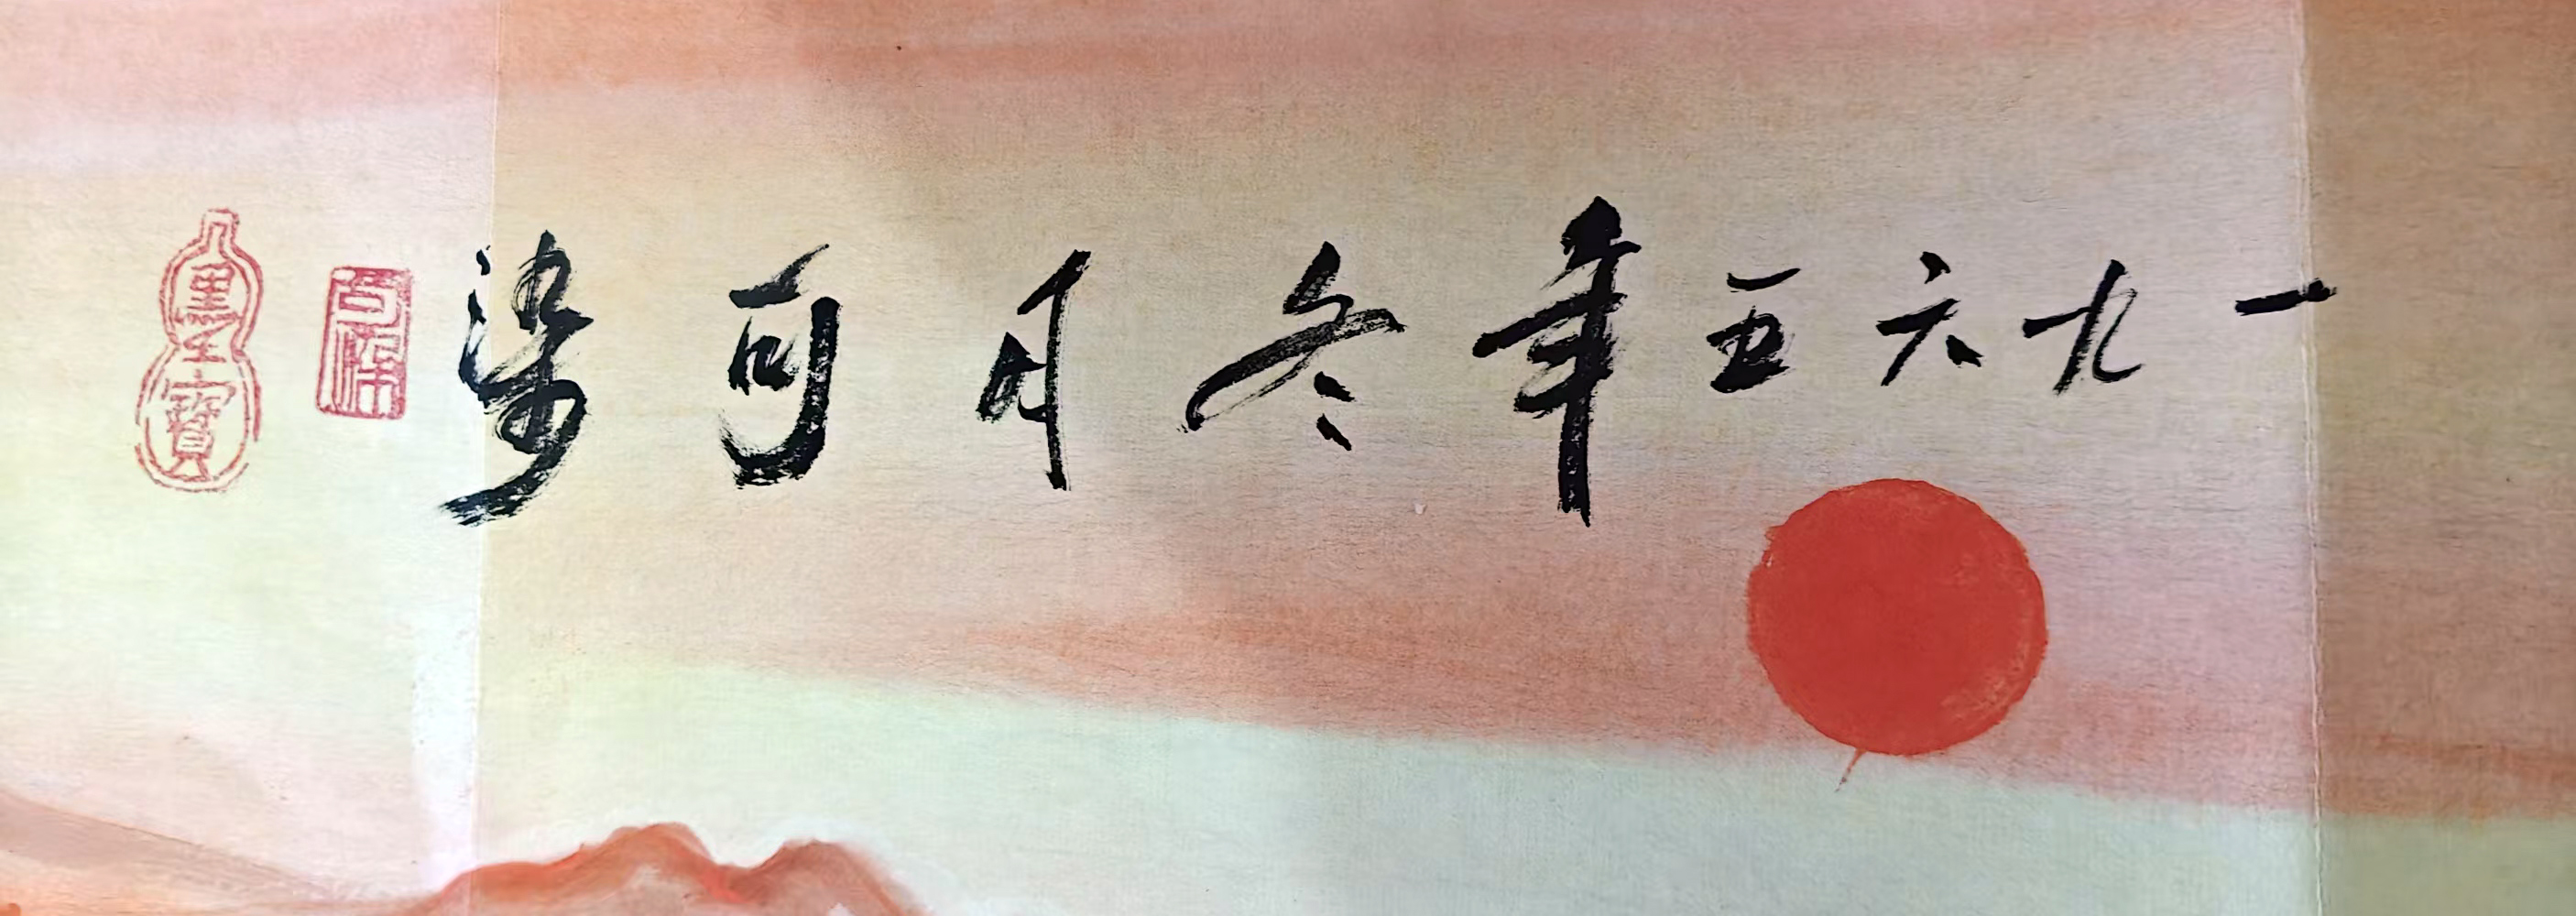 一九六五年冬月可染
可染
墨王寶